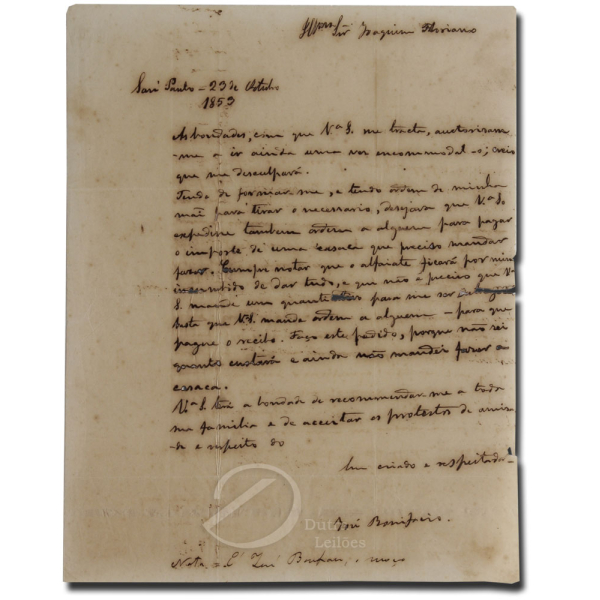 Illmo Snr Joaquim Floriano
San Paulo – 23 de Outubro
1853
As bondades, com que Vª S. me tracta, auctorisam
-me a ir ainda uma vez encommodal-o; creio
que me desculpará.
Tendo de formar-me, e tendo ordem de minha
mãe para tirar o necessario, desejava que Vª S.
expedisse tambem ordem a alguem para pagar
o importe de uma casaca que preciso mandar
fazer. Cumpre notar que o alfaiate ficará por mim
incumbido de dar tudo, e que não é preciso que Vª
S. mande uma quantia para me ser
basta que Vª S. mande ordem a alguem – para que
pague o recibo. Faço este pedido, porque não sei
quanto custará e ainda não mandei fazer a
casaca.
Vª S. terá a bondade de recommendar-me a toda
sua familia e de acceitar os protestos de amiza
-de e respeito do
seu criado e respeitador
José Bonifacio.
Nota, é José Bonifacio, o moço
Dutra
Leilões